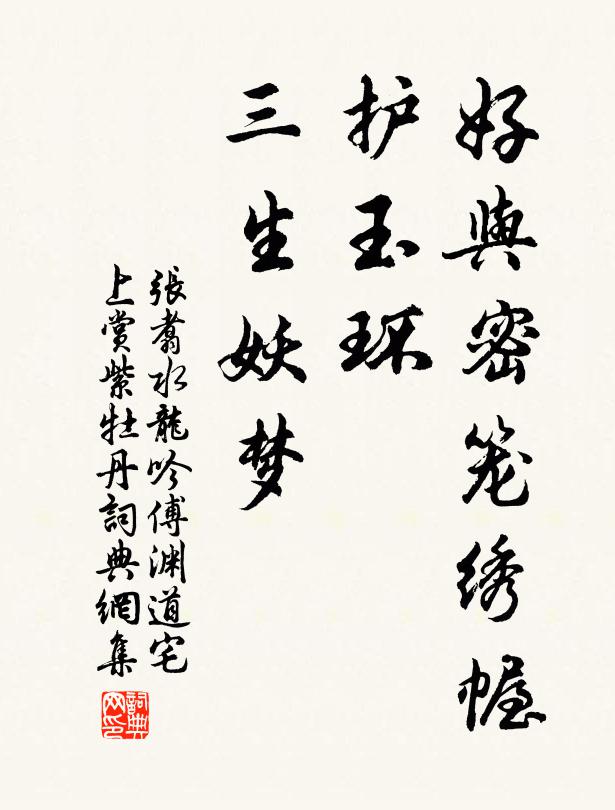 好與密笼绣幄
护玉环
三生妖梦
張翥水龍吟傅渊道宅
上赏紫牡丹詞典網集
詞典
网印